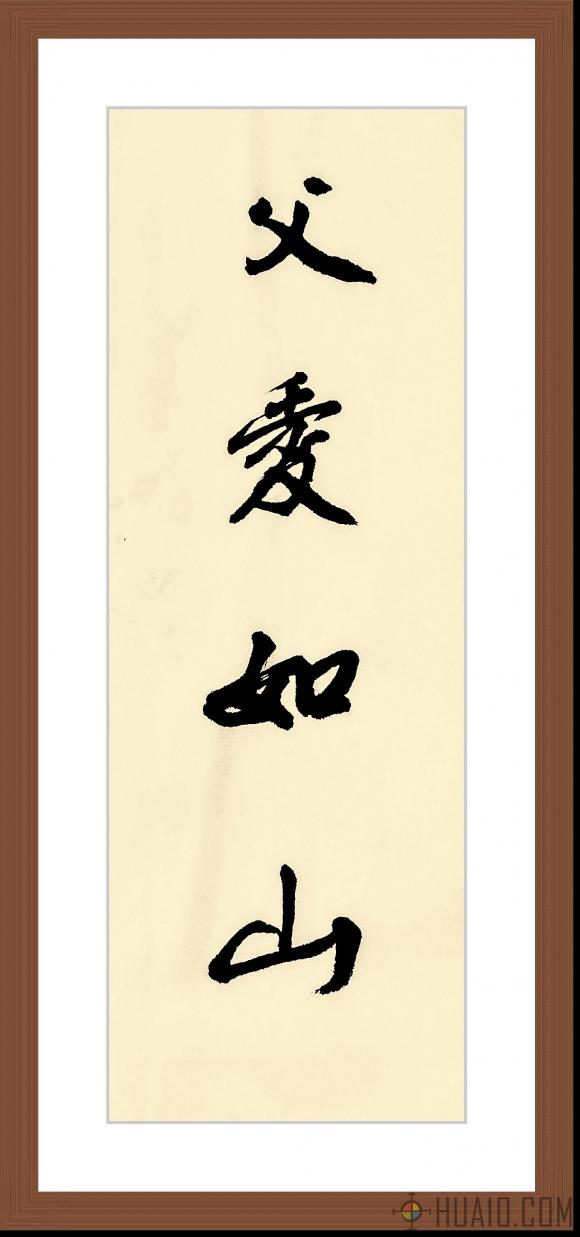 父愛如山
HUAIO.COM